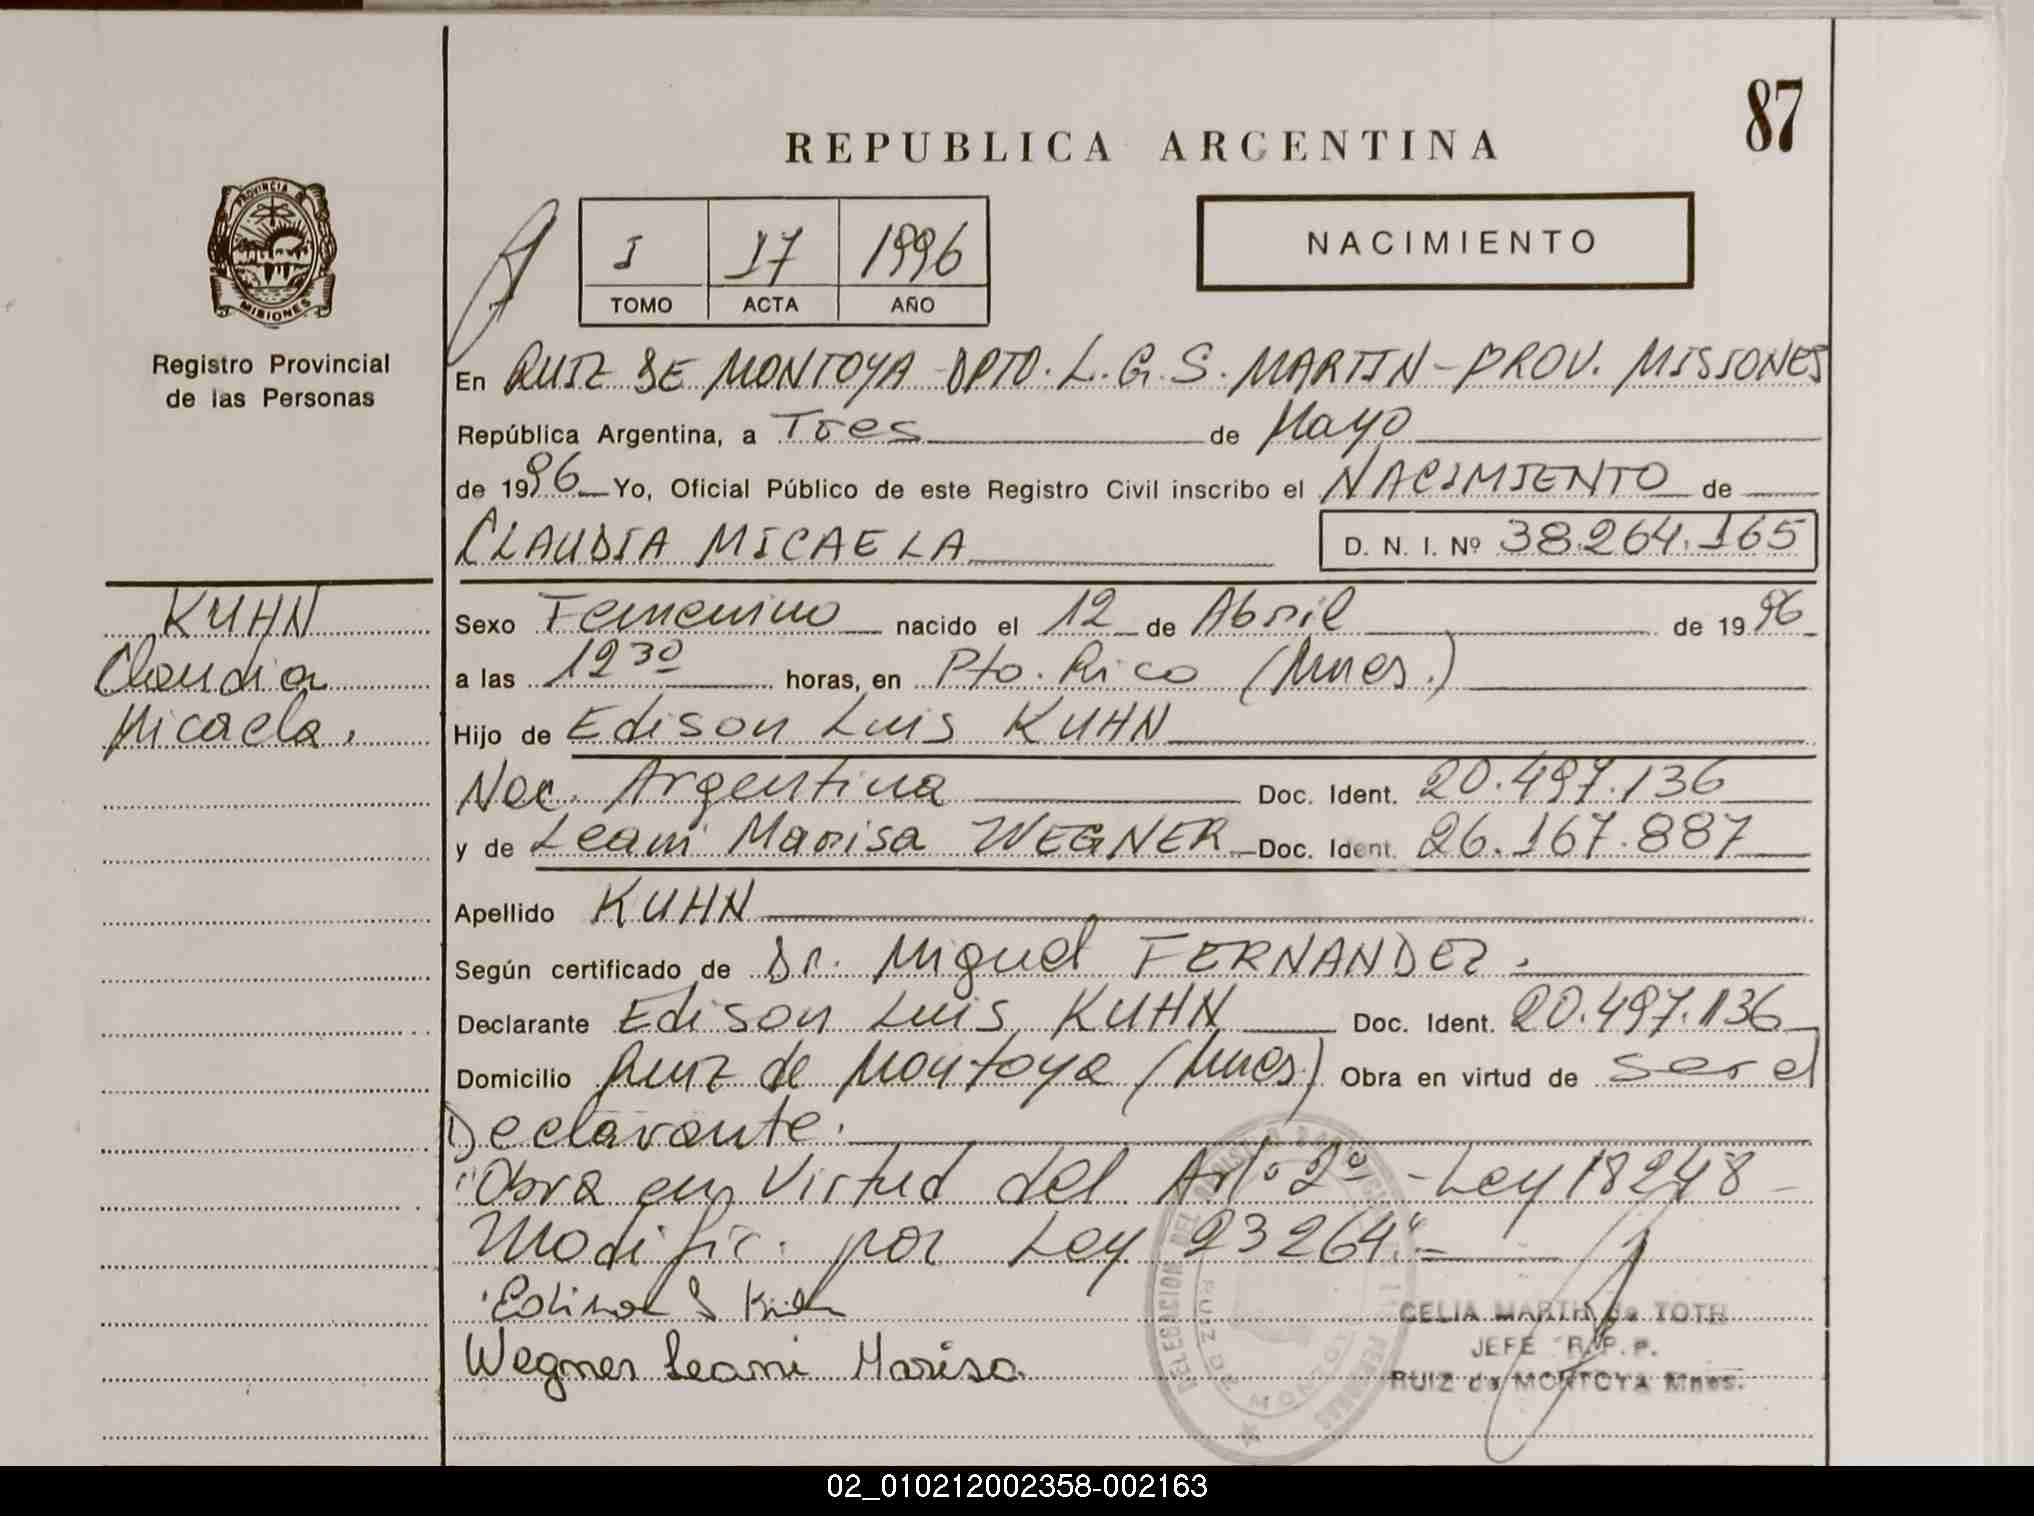 87
REPUBLICA ARGENTINA
PROVINCIA DE
MISIONES
Registro Provincial
de las Personas
I 17 1996
TOMO ACTA AÑO
NACIMIENTO
En RUIZ DE MONTOYA - DPTO. L. G. S. MARTIN - PROV. MISIONES
República Argentina, a Tres de Mayo
de 1996 Yo, Oficial Público de este Registro Civil inscribo el NACIMIENTO de
CLAUDIA MICAELA D. N. I. Nº 38.264.165
KUHN
Claudia
Micaela.
Sexo Femenino nacido el 12 de Abril de 1996
a las 12 30 horas, en Pto. Rico (Mnes.)
Hijo de Edison Luis KUHN
Nac. Argentina Doc. Ident. 20.497.136
y de Leani Marisa WEGNER Doc. Ident. 26.167.887
Apellido KUHN
Según certificado de Dr. Miguel FERNANDEZ.
Declarante Edison Luis KUHN Doc. Ident. 20.497.136
Domicilio Ruiz de Montoya (Mnes) Obra en virtud de ser el
Declarante.
"Obra en Virtud del Art. 2º - Ley 18248 -
Modific. por Ley 23264" =
Edison L Kuhn
Wegner Leani Marisa
DELEGACION DEL REGISTRO PROVINCIAL DE LAS PERSONAS
RUIZ DE MONTOYA
CELIA MARTH de TOTH
JEFE R. P. P.
RUIZ de MONTOYA Mnes.
02_010212002358-002163